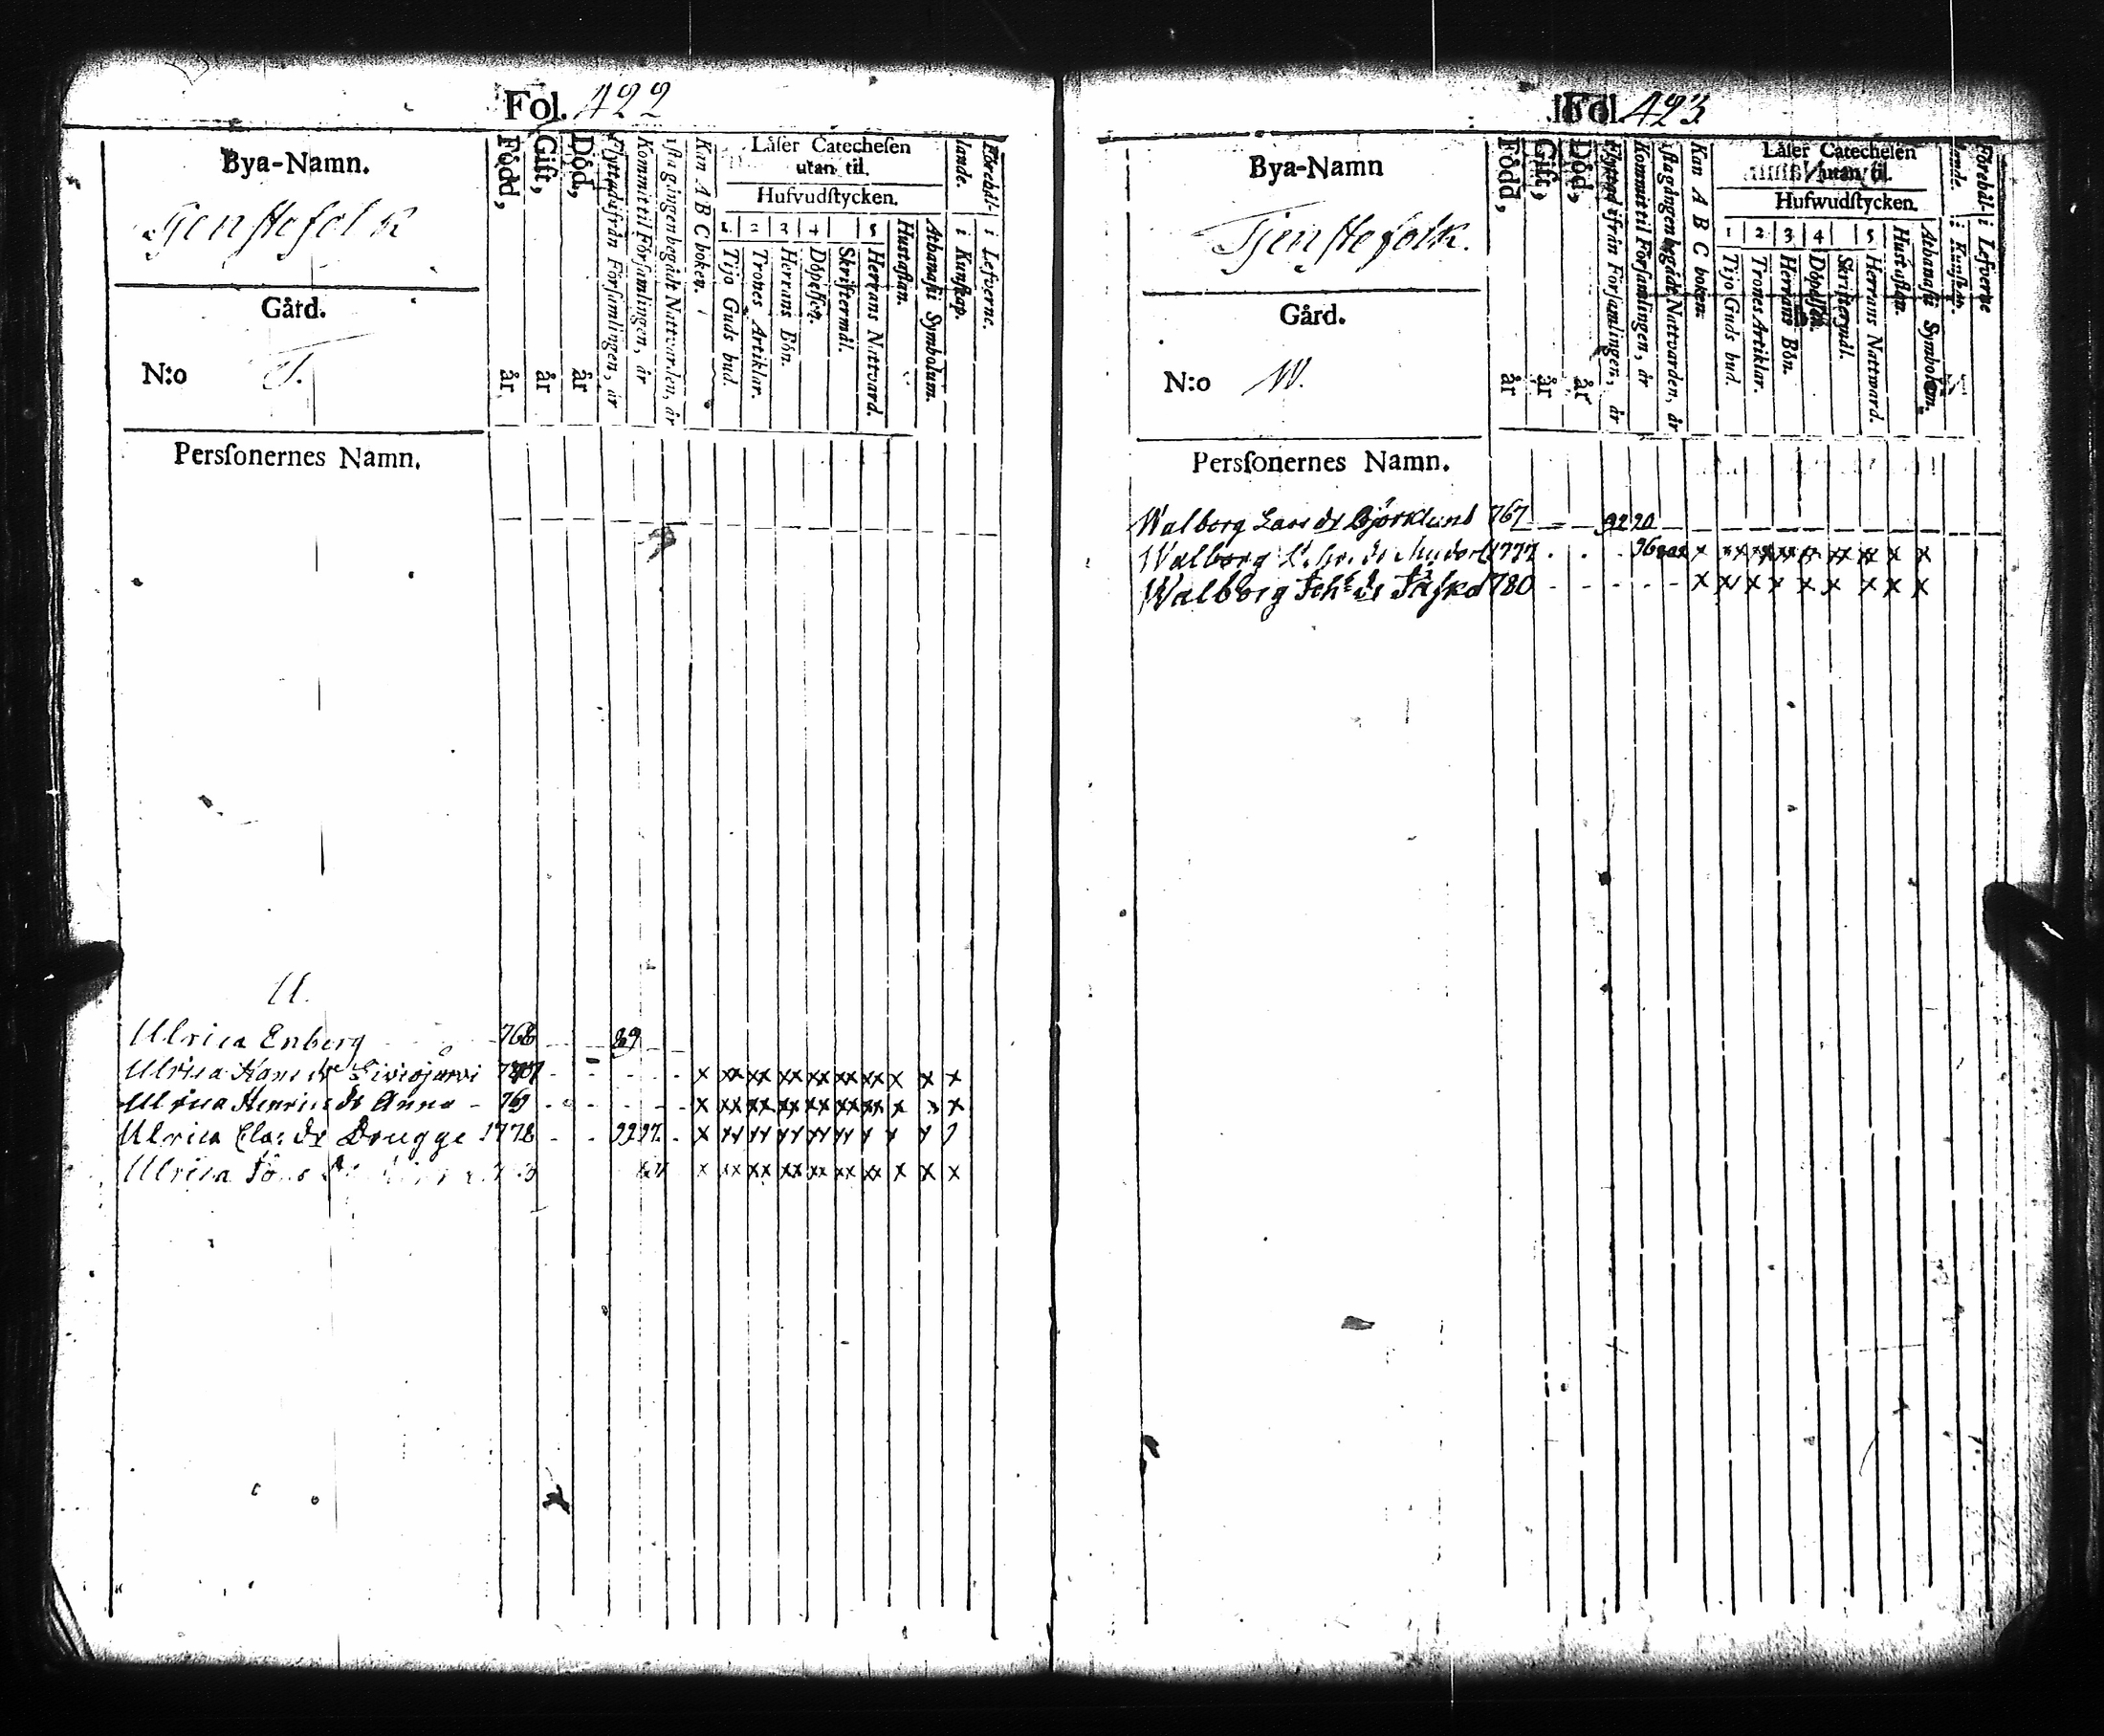 Fol. 422
Bya-Namn.
Tjenstefolk
Gård.
N:o T.
Persſonernes Namn.
Född, år
Gift, år
Död, år
Flyttad ifrån Förſamlingen, år
Kommit til Förſamlingen, år
begådt Nattvarden, år
Kan A B C boken.
Läſer Catecheſen
utan til.
Hufvudſtycken.
1 2 3 4 5
Tijo Guds bud.
Trones Artiklar.
Herrans Bön.
Döpelſen.
Skriftermål.
Herrans Nattvard.
Hustaflan.
Athanaſii Symbolum.
Förehållande.
i Kunſkap.
i Lefverne.
U.
Ulrica Enberg 768 89
Ulrica x xx xx xx xx xx xx x x x
Ulrica Henricsdr Anna 769 x xx xx xx xx xx xx x x x
Ulrica Clasdr Drugge 1778 99 97
Ulrica x xx xx xx xx xx xx x x x
Fol. 423
Bya-Namn
Tjenstefolk.
Gård.
N:o W.
Persſonernes Namn.
Född, år
Gift, år
Död, år
Flyttad ifrån Förſamlingen, år
Kommit til Förſamlingen, år
begådt Nattvarden, år
Kan A B C boken.
Läſer Catecheſen
utan til.
Hufwudſtycken.
1 2 3 4 5
Tijo Guds bud.
Trones Artiklar.
Herrans Bön.
Döpelſen
Skriftermål.
Herrans Nattward.
Hustaflan.
Athanaſii Symbolum.
i Kunſkap.
i Lefverne
Walborg Larsdr Björklund 767 92 90
Walborg 1777 96 x xx xx xx xx xx xx x x
Walborg 1780 x x x x x x x x x